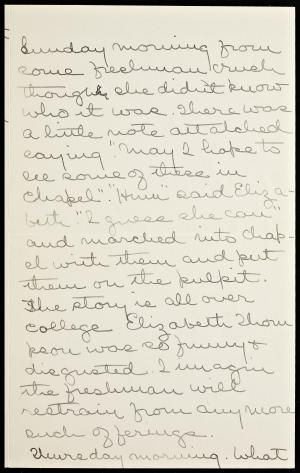 Sunday morning from
some freshman crush
though she didn't know
who it was. There was
a little note attatched
saying "May I hope to
see some of these in
Chapel". "Hum" said Eliza-
beth "I guess she can"
and marched into chap-
el with them and put
them on the pulpit.
The story is all over
college Elizabeth Thom
pson was so funny &
disgusted. I imagin
the freshman will
restrain from any more
such offerings.
Thursday morning. What